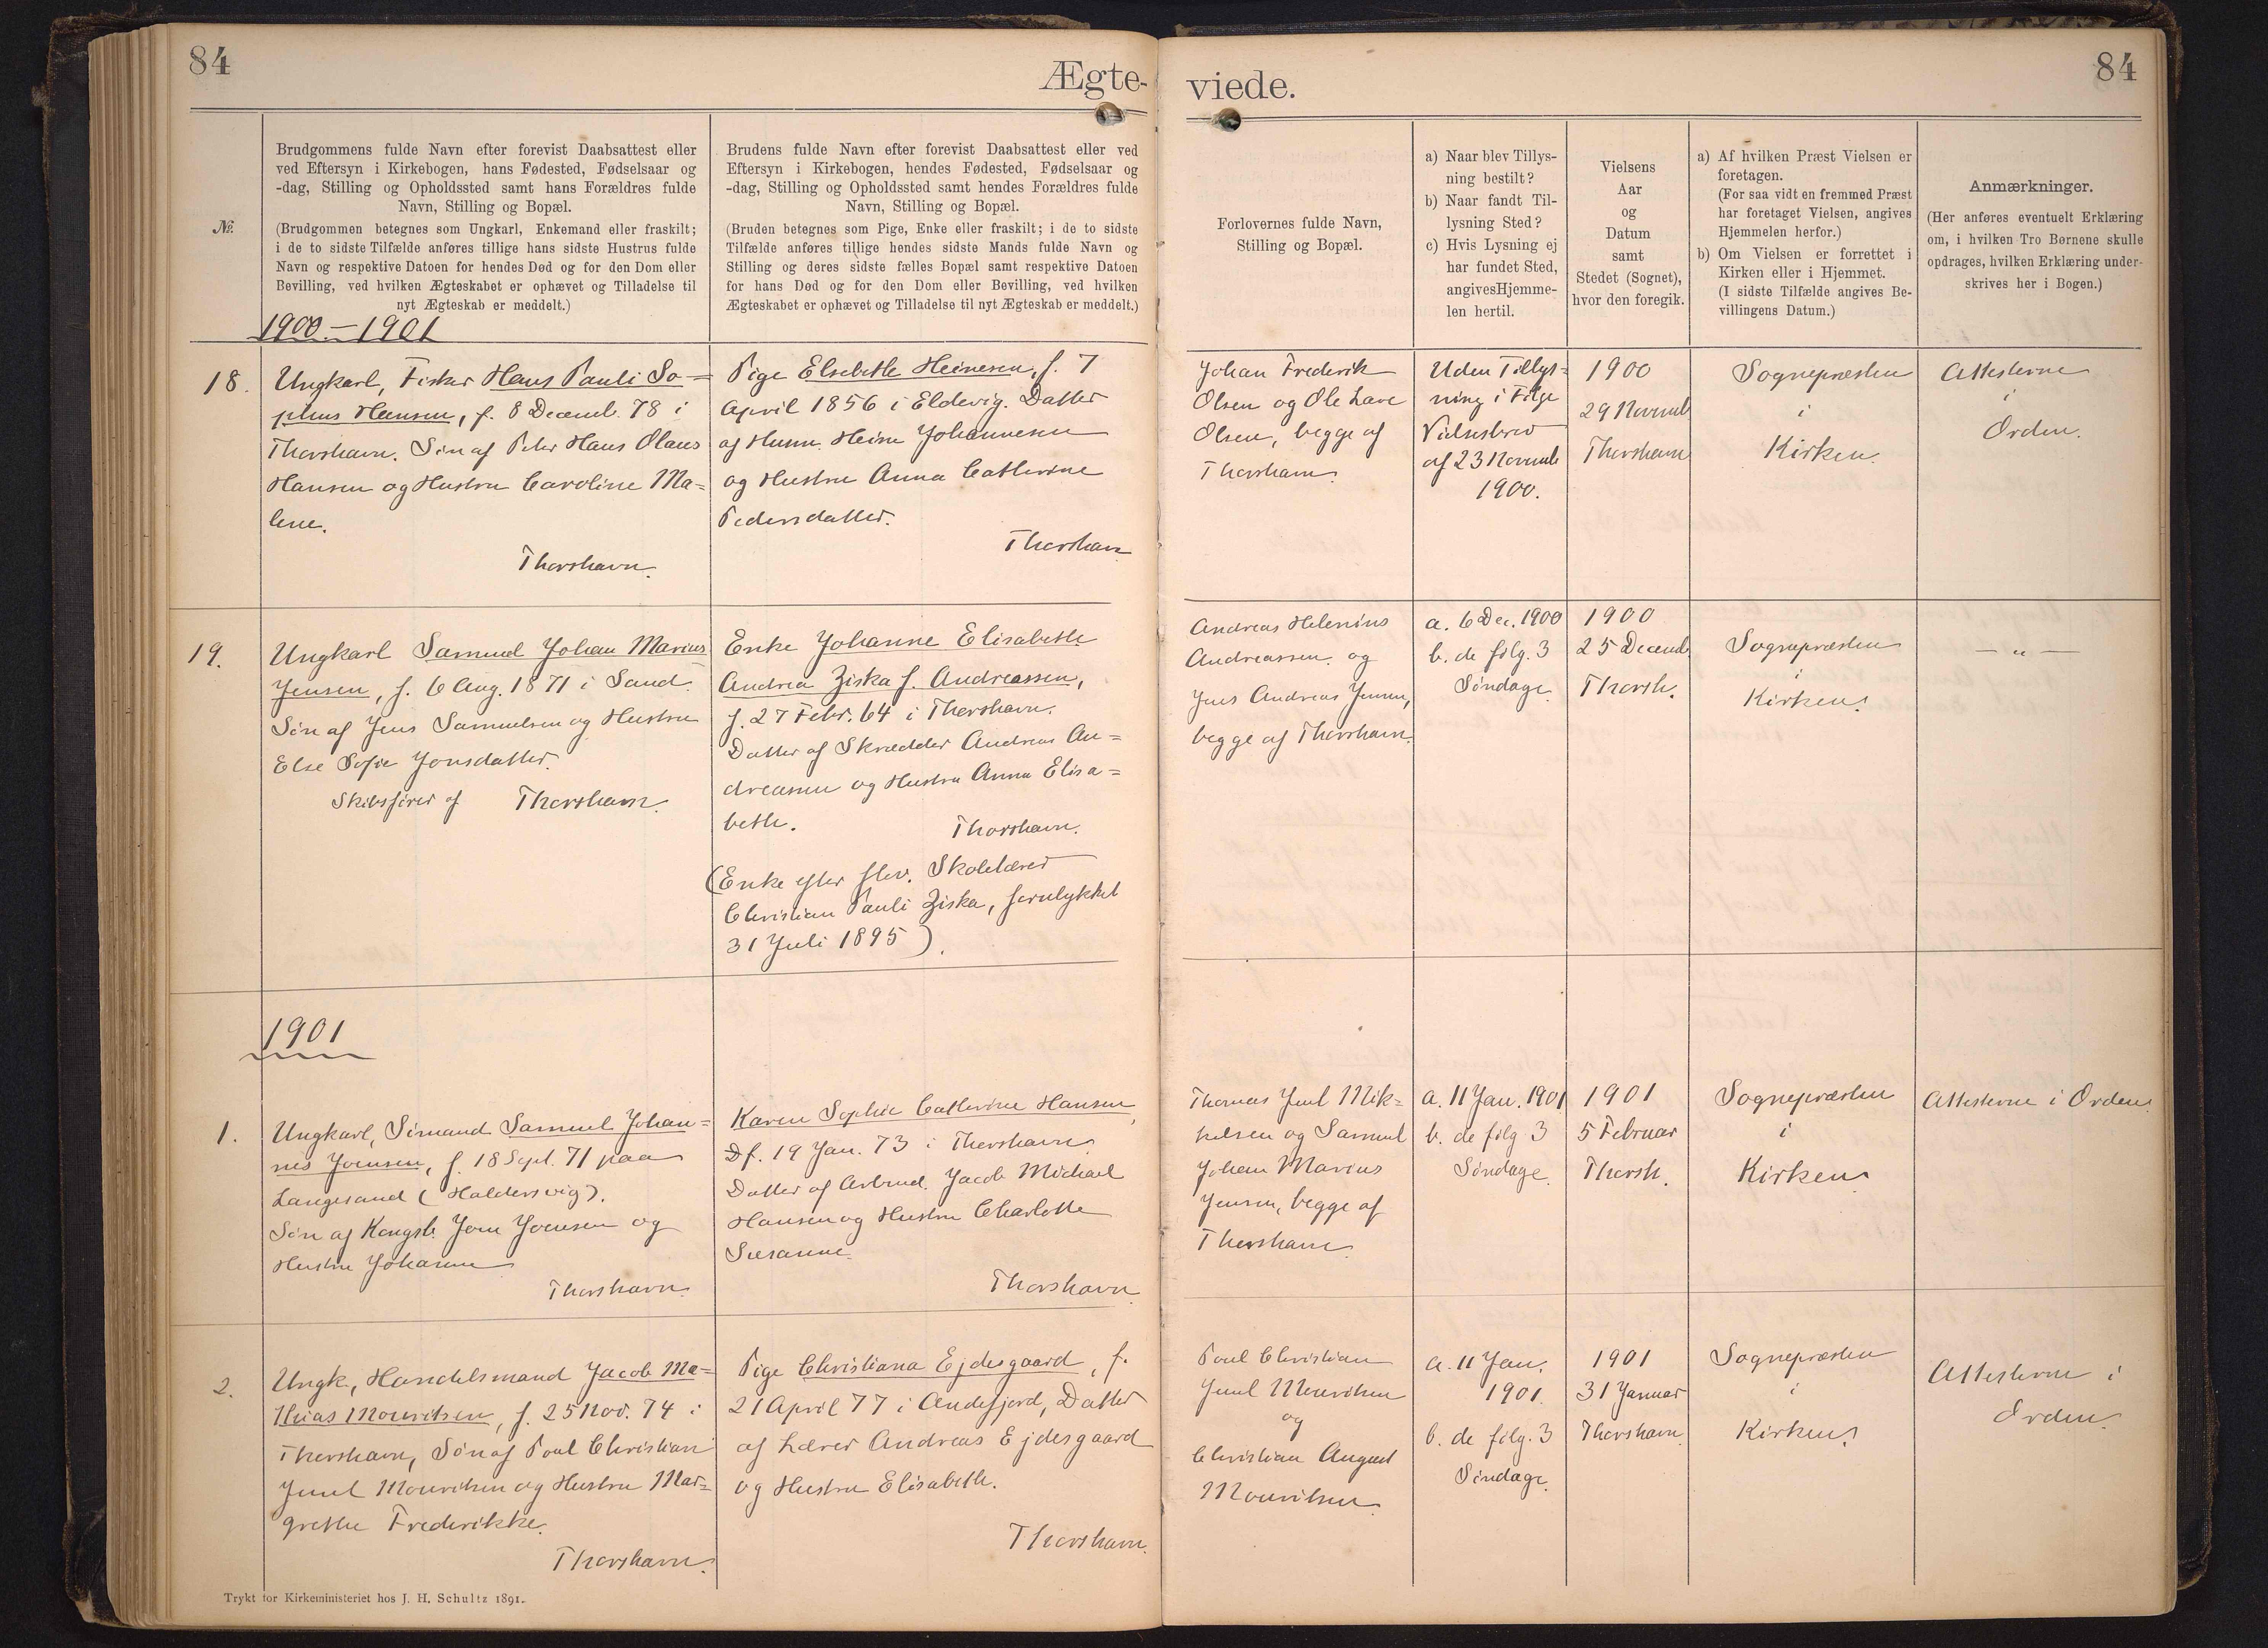 84
Ægte-
viede.
84
№
Brudgommens fulde Navn efter forevist Daabsattest eller
ved Eftersyn i Kirkebogen, hans Fødested, Fødselsaar og
-dag, Stilling og Opholdssted samt hans Forældres fulde
Navn, Stilling og Bopæl.
(Brudgommen betegnes som Ungkarl, Enkemand eller fraskilt;
i de to sidste Tilfælde anføres tillige hans sidste Hustrus fulde
Navn og respektive Datoen for hendes Død og for den Dom eller
Bevilling, ved hvilken Ægteskabet er ophævet og Tilladelse til
nyt Ægteskab er meddelt.)
Brudens fulde Navn efter forevist Daabsattest eller ved
Eftersyn i Kirkebogen, hendes Fødested, Fødselsaar og
-dag, Stilling og Opholdssted samt hendes Forældres fulde
Navn, Stilling og Bopæl.
(Bruden betegnes som Pige, Enke eller fraskilt; i de to sidste
Tilfælde anføres tillige hendes sidste Mands fulde Navn og
Stilling og deres sidste fælles Bopæl samt respektive Datoen
for hans Død og for den Dom eller Bevilling, ved hvilken
Ægteskabet er ophævet og Tilladelse til nyt Ægteskab er meddelt.)
Forlovernes fulde Navn,
Stilling og Bopæl.
a) Naar blev Tillys-
ning bestilt?
b) Naar fandt Til-
lysning Sted?
c) Hvis Lysning ej
har fundet Sted,
angives Hjemme-
len hertil.
Vielsens
Aar
og
Datum
samt
Stedet (Sognet),
hvor den foregik.
a) Af hvilken Præst Vielsen er
foretagen.
(For saa vidt en fremmed Præst
har foretaget Vielsen, angives
Hjemmelen herfor.)
b) Om Vielsen er forrettet i
Kirken eller i Hjemmet.
(I sidste Tilfælde angives Be-
villingens Datum.)
Anmærkninger.
(Her anføres eventuelt Erklæring
om, i hvilken Tro Børnene skulle
opdrages, hvilken Erklæring under-
skrives her i Bogen.)
1900.-1901
18.
Ungkarl, Fisker Hans Pauli So=
phus Hansen, f. 8 Decemb. 78 i
Thorshavn. Søn af Peter Hans Olaus
Hansen og Hustru Caroline Ma=
lene.
Thorshavn.
Pige Elsebeth Heinesen, f. 7
April 1856 i Eldevig. Datter
af Husm. Heine Johannesen
og Hustru Anna Cathrine
Pedersdatter.
Thorshavn
Johan Frederik
Olsen og Ole Lave
Olsen, begge af
Thorshavn.
Uden Tillys=
ning i Følge
Vielsesbrev
af 23 Novemb
1900.
1900
29 Novemb
Thorshavn
Sognepræsten
i
Kirken.
Attesterne
i
Orden.
19.
Ungkarl Samuel Johan Marius
Jensen, f. 6 Aug. 1871 i Sand.
Søn af Jens Samuelsen og Hustru
Else Sofie Jonsdatter.
Skibsfører af Thorshavn.
Enke Johanne Elisabeth
Andrea Ziska f. Andreassen,
f. 27 Febr. 64 i Thorshavn.
Datter af Skrædder Andreas An=
dreasen og Hustru Anna Elisa=
beth.
Thorshavn.
(Enke efter Skolelærer
Christian Pauli Ziska, forulykket
31 Juli 1895).
Andreas Helenius
Andreassen og
Jens Andreas Jensen,
begge af Thorshavn.
a. 6 Dec. 1900
b. de følg. 3
Søndage.
1900
25 Decemb.
Thorsh.
Sognepræsten
i
Kirken.
— „ —
1901
1.
Ungkarl, Sømand Samuel Johan=
nes Joensen, f. 18 Sept. 71 paa
Langesand (Haldersvig).
Søn af Kongsb. Joen Joensen og
Hustru Johanne
Thorshavn.
Karen Sophie Cathrine Hansen,
f. 19 Jan. 73 i Thorshavn
Datter af Arbmd. Jacob Michael
Hansen og Hustru Charlotte
Susanne.
Thorshavn.
Thomas Juul Mik=
kelsen og Samuel
Johan Marius
Jensen, begge af
Thorshavn.
a. 11 Jan. 1901
b. de følg 3
Søndage.
1901
5 Februar
Thorsh.
Sognepræsten
i
Kirken.
Attesterne i Orden.
2.
Ungk., Handelsmand Jacob Ma=
thias Mouritsen, f. 25 Nov. 74 i
Thorshavn, Søn af Poul Christian
Juul Mouritsen og Hustru Mar=
grethe Frederikke.
Thorshavn.
Pige Christiana Ejdesgaard, f.
21 April 77 i Andefjord, Datter
af Lærer Andreas Ejdesgaard
og Hustru Elisabeth.
Thorshavn.
Poul Christian
Juul Mouritsen
og
Christian August
Mouritsen.
a. 11 Jan.
1901.
b. de følg. 3
Søndage.
1901
31 Januar
Thorshavn
Sognepræsten
i
Kirken.
Attesterne i
Orden.
Trykt for Kirkeministeriet hos J. H. Schultz 1891.